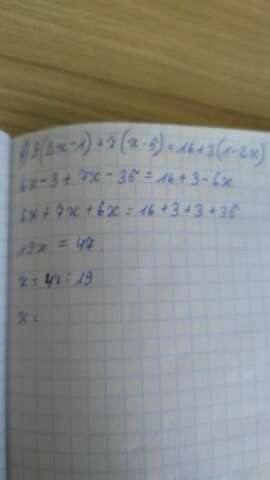 б) 3(2x-1)+7(x-5)=16+3(1-2x)
6x-3+7x-35=16+3-6x
6x+7x+6x=16+3+3+35
19x=47
x=47:19
x=